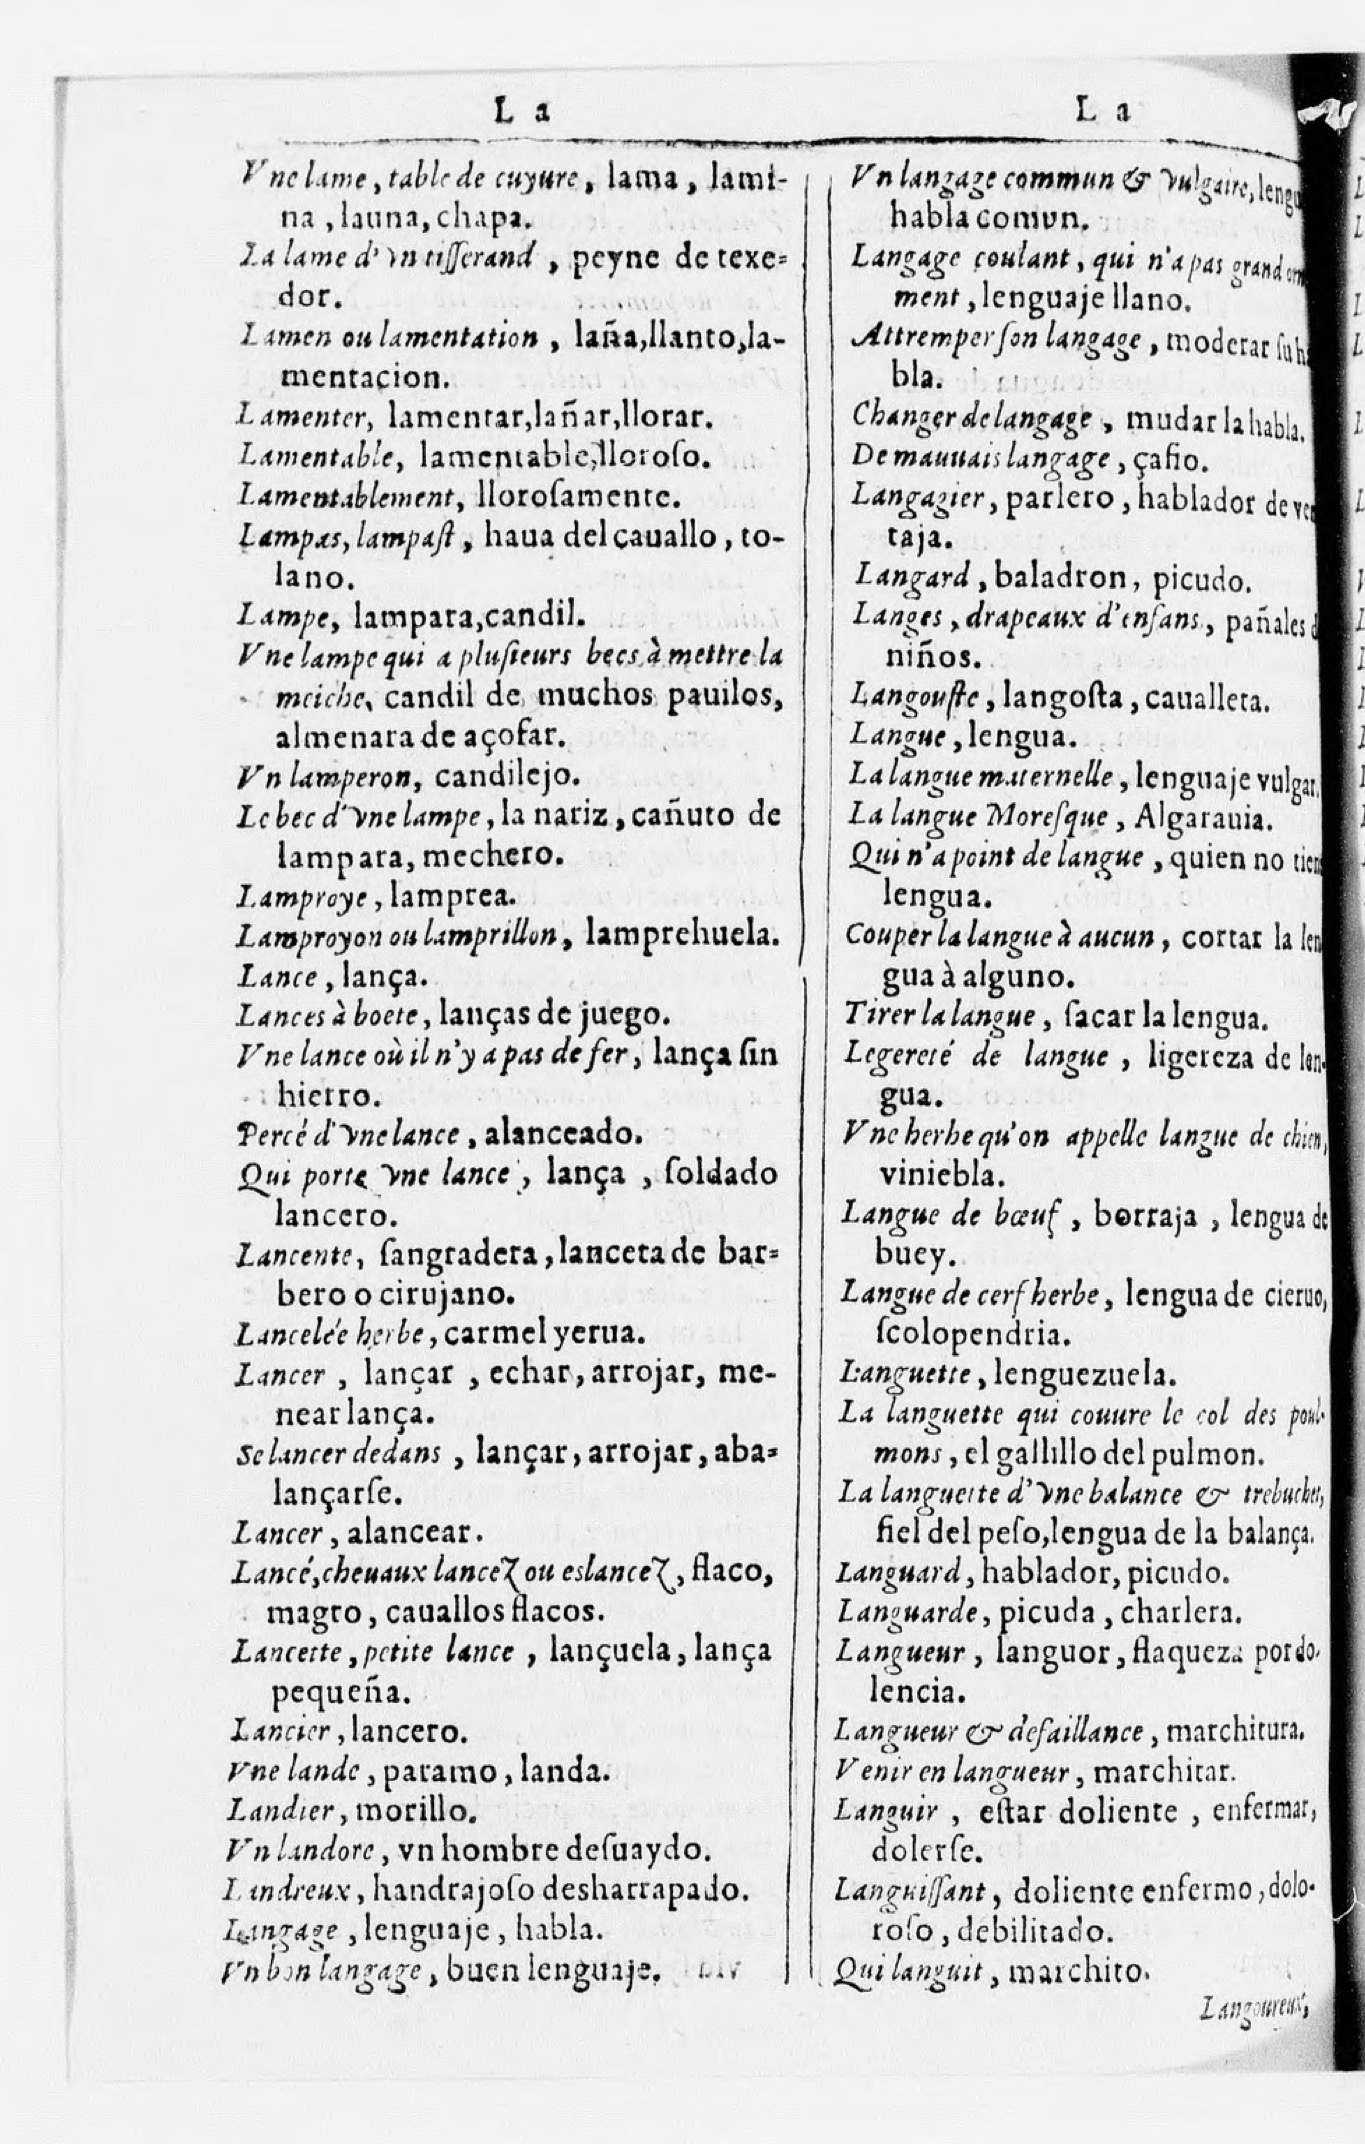 La
Vne lame, table de cuyure, lama, lami-
na, launa, chapa.
La lame d'vn tisserand, peyne de texe-
dor.
Lamen ou lamentation, laña, llanto, la-
mentaçion.
Lamenter, lamentar, lañar, llorar.
Lamentable, lamentable, lloroſo.
Lamentablement, lloroſamente.
Lampas, lampaſt, haua del cauallo, to-
lano.
Lampe, lampara, candil.
Vne lampe qui a pluſieurs becs à mettre la
meiche, candil de muchos pauilos,
almenara de açofar.
Vn lamperon, candilejo.
Le bec d'vne lampe, la nariz, cañuto de
lampara, mechero.
Lamproye, lamprea.
Lamproyon ou lamprillon, lamprehuela.
Lance, lança.
Lances à boete, lanças de juego.
Vne lance où il n'y a pas de fer, lança ſin
hierro.
Percé d'vne lance, alanceado.
Qui porte vne lance, lança, ſoldado
lancero.
Lancente, ſangradera, lanceta de bar-
bero o cirujano.
Lancelée herbe, carmel yerua.
Lancer, lançar, echar, arrojar, me-
near lança.
Se lancer dedans, lançar, arrojar, aba-
lançarſe.
Lancer, alancear.
Lancé, cheuaux lancez ou eslancez, flaco,
magro, cauallos flacos.
Lancette, petite lance, lançuela, lança
pequeña.
Lancier, lancero.
Vne lande, paramo, landa.
Landier, morillo.
Vn landore, vn hombre deſuaydo.
Landreux, handrajoſo desharrapado.
Langage, lenguaje, habla.
Vn bon langage, buen lenguaje.
La
Vn langage commun & vulgaire,
habla comun.
Langage coulant, qui n'a pas grand
ment, lenguaje llano.
Attremper ſon langage, moderar ſu
bla.
Changer de langage, mudar la habla.
De mauuais langage, çafio.
Langagier, parlero, hablador de
taja.
Langard, baladron, picudo.
Langes, drapeaux d'enfans, pañales
niños.
Langouſte, langoſta, caualleta.
Langue, lengua.
La langue maternelle, lenguaje vulgar.
La langue Moreſque, Algarauia.
Qui n'a point de langue, quien no
lengua.
Couper la langue à aucun, cortar la len
gua à alguno.
Tirer la langue, ſacar la lengua.
Legereté de langue, ligereza de len-
gua.
Vne herbe qu'on appelle langue de chien,
viniebla.
Langue de bœuf, borraja, lengua de
buey.
Langue de cerf herbe, lengua de cieruo,
ſcolopendria.
Languette, lenguezuela.
La languette qui couure le col des poul-
mons, el gallillo del pulmon.
La languette d'vne balance & trebuchet,
fiel del peſo, lengua de la balança.
Languard, hablador, picudo.
Languarde, picuda, charlera.
Langueur, languor, flaqueza por do-
lencia.
Langueur & defaillance, marchitura.
Venir en langueur, marchitar.
Languir, eſtar doliente, enfermar,
dolerſe.
Languiſſant, doliente enfermo, dolo-
roſo, debilitado.
Qui languit, marchito.
Langoureux,